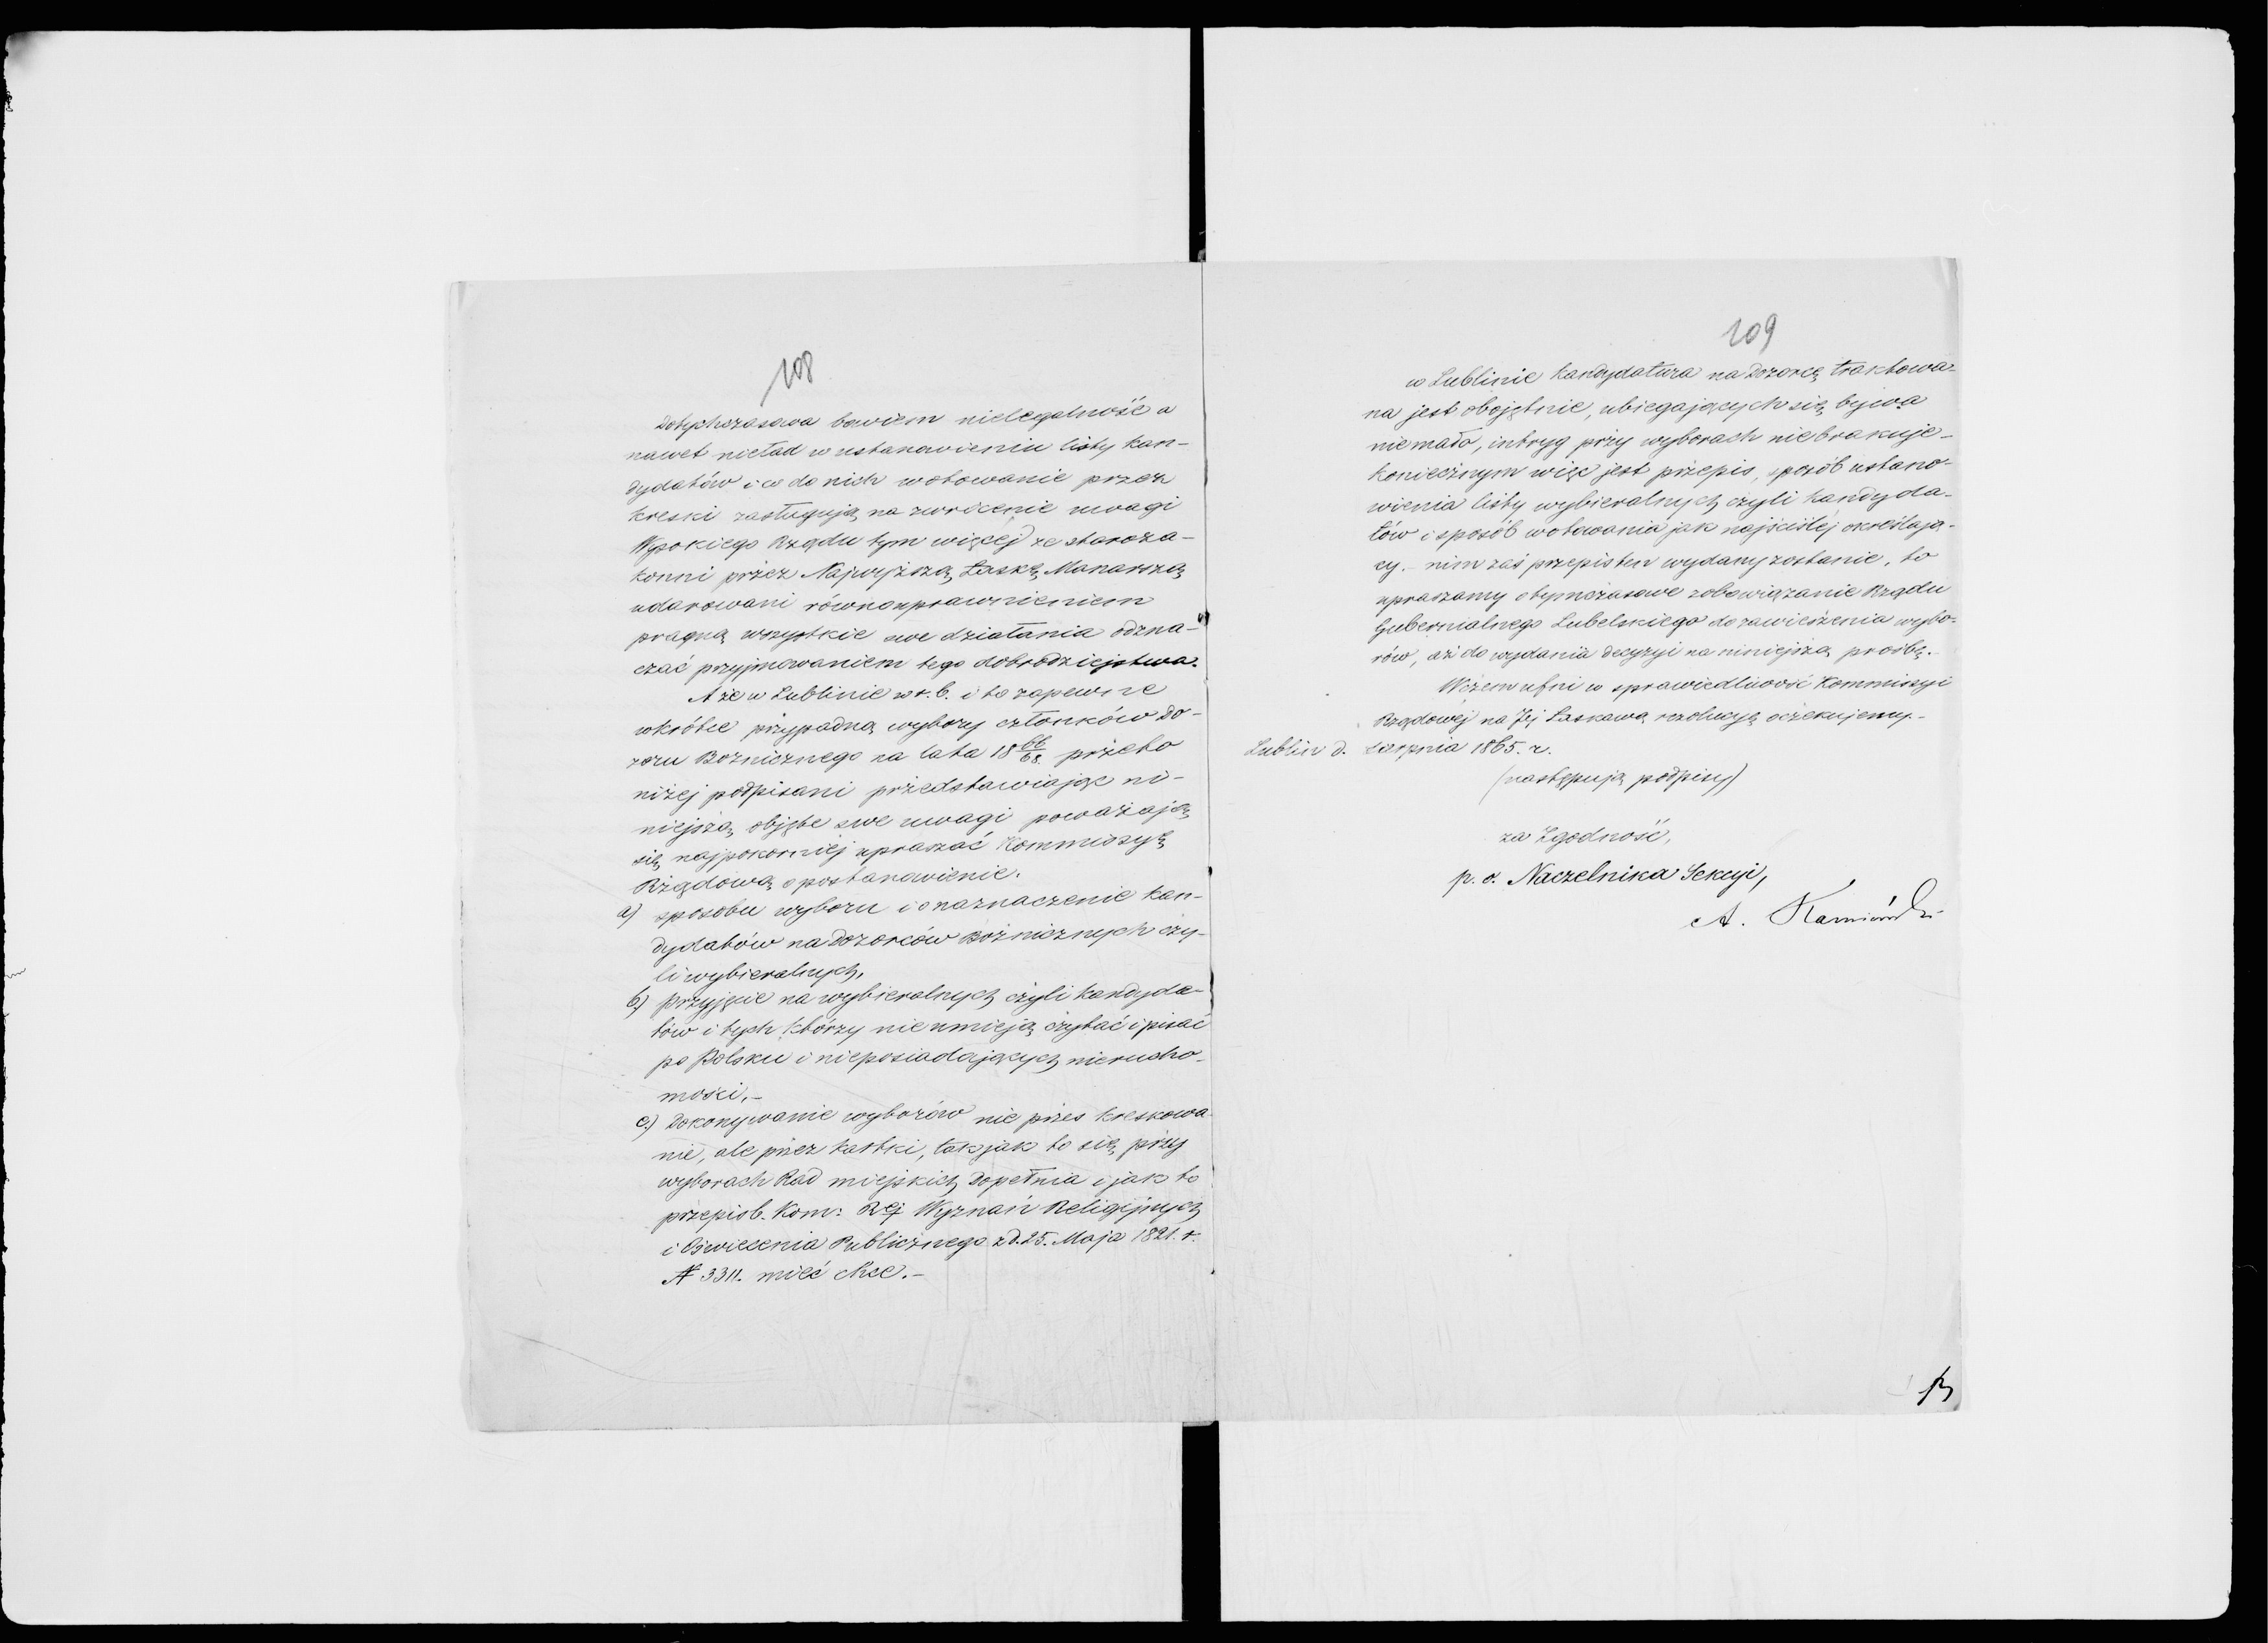 108
Dotychczasowa bowiem nielegalność a
nawet nieład w ustanowieniu listy kan-
dydatów i co do nich wotowanie przez
kreski zasługują na zwrócenie uwagi
Wysokiego Rządu tym więcej że staroza-
konni przez Najwyższą Łaskę Monarszą
udarowani równouprawnieniem
pragną wszystkie swe działania odzna-
czać przyjmowaniem tego dobrodziejstwa.
A że w Lublinie w r. b. i to zapewne
wkrótce przypadną wybory członków Do-
zoru Bożnicznego na lata 18 66/68. przeto
niżej podpisani przedstawiając ni-
niejszą objęte swe uwagi poważają
się najpokorniej upraszać Kommissyą
Rządową o postanowienie.
a) sposobu wyboru i o naznaczenie kan-
dydatów na Dozorców Bożnicznych czy-
li wybieralnych,
b) przyjęcie na wybieralnych czyli kandyda-
tów i tych którzy nie umieją czytać i pisać
po Polsku i nieposiadających nierucho-
mości.-
c.) Dokonywanie wyborów nie przes kreskowa-
nie, ale przez kartki, tak jak to się przy
wyborach Rad miejskich dopełnia i jak to
przepis b. Kom: Rej Wyznań Religijnych
i Oświecenia Publicznego z d. 25. Maja 1821. r.
N 3311. mieć chce.-
109
w Lublinie kandydatura na Dozorcę traktowa-
na jest obojętnie, ubiegających się bywa
niemało, intryg przy wyborach niebrakuje-
koniecznym więc jest przepis, sposób ustano-
wienia listy wybieralnych czyli kandyda-
tów i sposób wotowania jak najściślej określają-
cy.- nim zaś przepis ten wydany zostanie, to
upraszamy o tymczasowe zobowiązanie Rządu
Gubernialnego Lubelskiego do zawieszenia wybo-
rów, aż do wydania decyzyi na niniejszą prośbę.-
W czem ufni w sprawiedliwość Kommissyi
Rządowéj na Jéj Łaskawą rezolucyą oczekujemy.-
Lublin d. sierpnia 1865. r.
(następują podpisy)
za Zgodność,
p. o. Naczelnika Sekcyi,
A. Kamiński